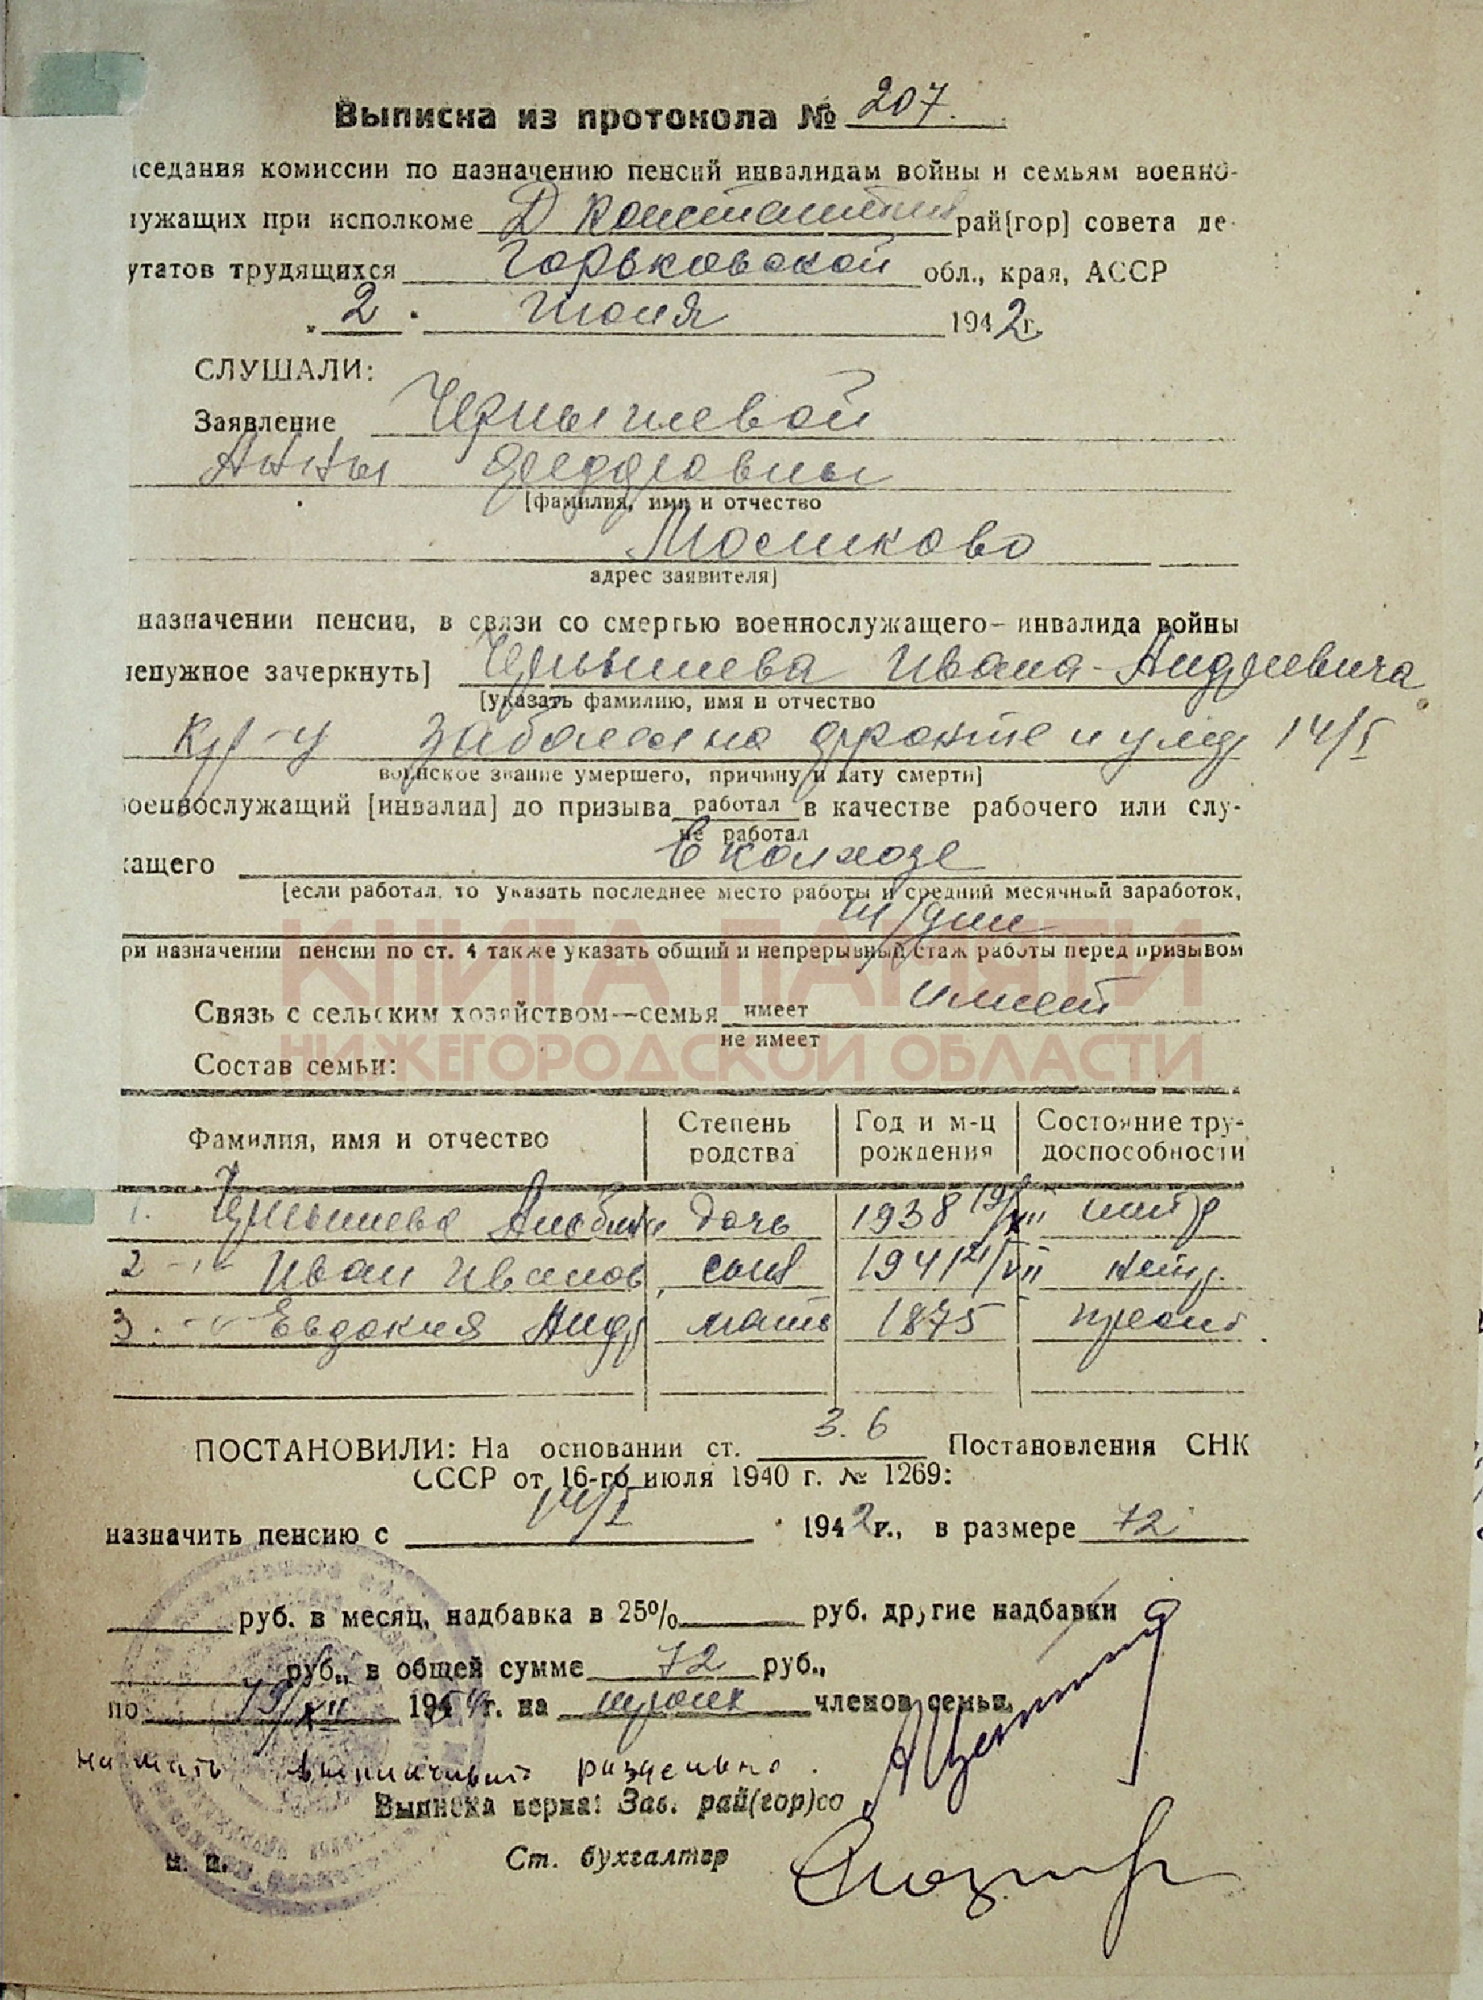 Выписка из протокола № 207.
седания комиссии по назначению пенсий инвалидам войны и семьям военно-
лужащих при исполкоме Д Константин рай[гор] совета де-
утатов трудящихся Горьковской обл., края, АССР
„ 2 " Июня 1942 г.
СЛУШАЛИ:
Заявление Чернышевой
Анны Федоровны
[фамилия, имя и отчество
Мосиково
адрес заявителя]
назначении пенсии, в связи со смертью военнослужащего- инвалида войны
ненужное зачеркнуть] Чернышева Ивана Андреевича
[указать фамилию, имя и отчество
кр-у заболел на фронте и умер 14/I
воинское звание умершего, причину и дату смерти]
военнослужащий [инвалид] до призыва работал в качестве рабочего или слу-
не работал
жащего в колхозе
[если работал, то указать последнее место работы и средний месячный заработок,
т/дни
ри назначении пенсии по ст. 4 также указать общий и непрерывный стаж работы перед призывом
КНИГА ПАМЯТИ
Связь с сельским хозяйством—семья имеет имеет
не имеет
НИЖЕГОРОДСКОЙ ОБЛАСТИ
Состав семьи:
Фамилия, имя и отчество Степень родства Год и м-ц рождения Состояние тру- доспособности
1. Чернышева дочь 1938 19/XII
2 -"- Иван Иванов сын 1941 21/VII нетр.
3. -"- Евдокия Андр мать 1875
ПОСТАНОВИЛИ: На основании ст. 3. 6 Постановления СНК
СССР от 16-го июля 1940 г. № 1269:
назначить пенсию с 14/I 1942 г., в размере 72
руб. в месяц, надбавка в 25% руб. другие надбавки
руб., в общей сумме 72 руб.,
по 19/XII 1954 г. на троих членов семьи.
на мать выплачивать раздельно.
Выписка верна: Зав. рай(гор)со
м. п. Ст. бухгалтер